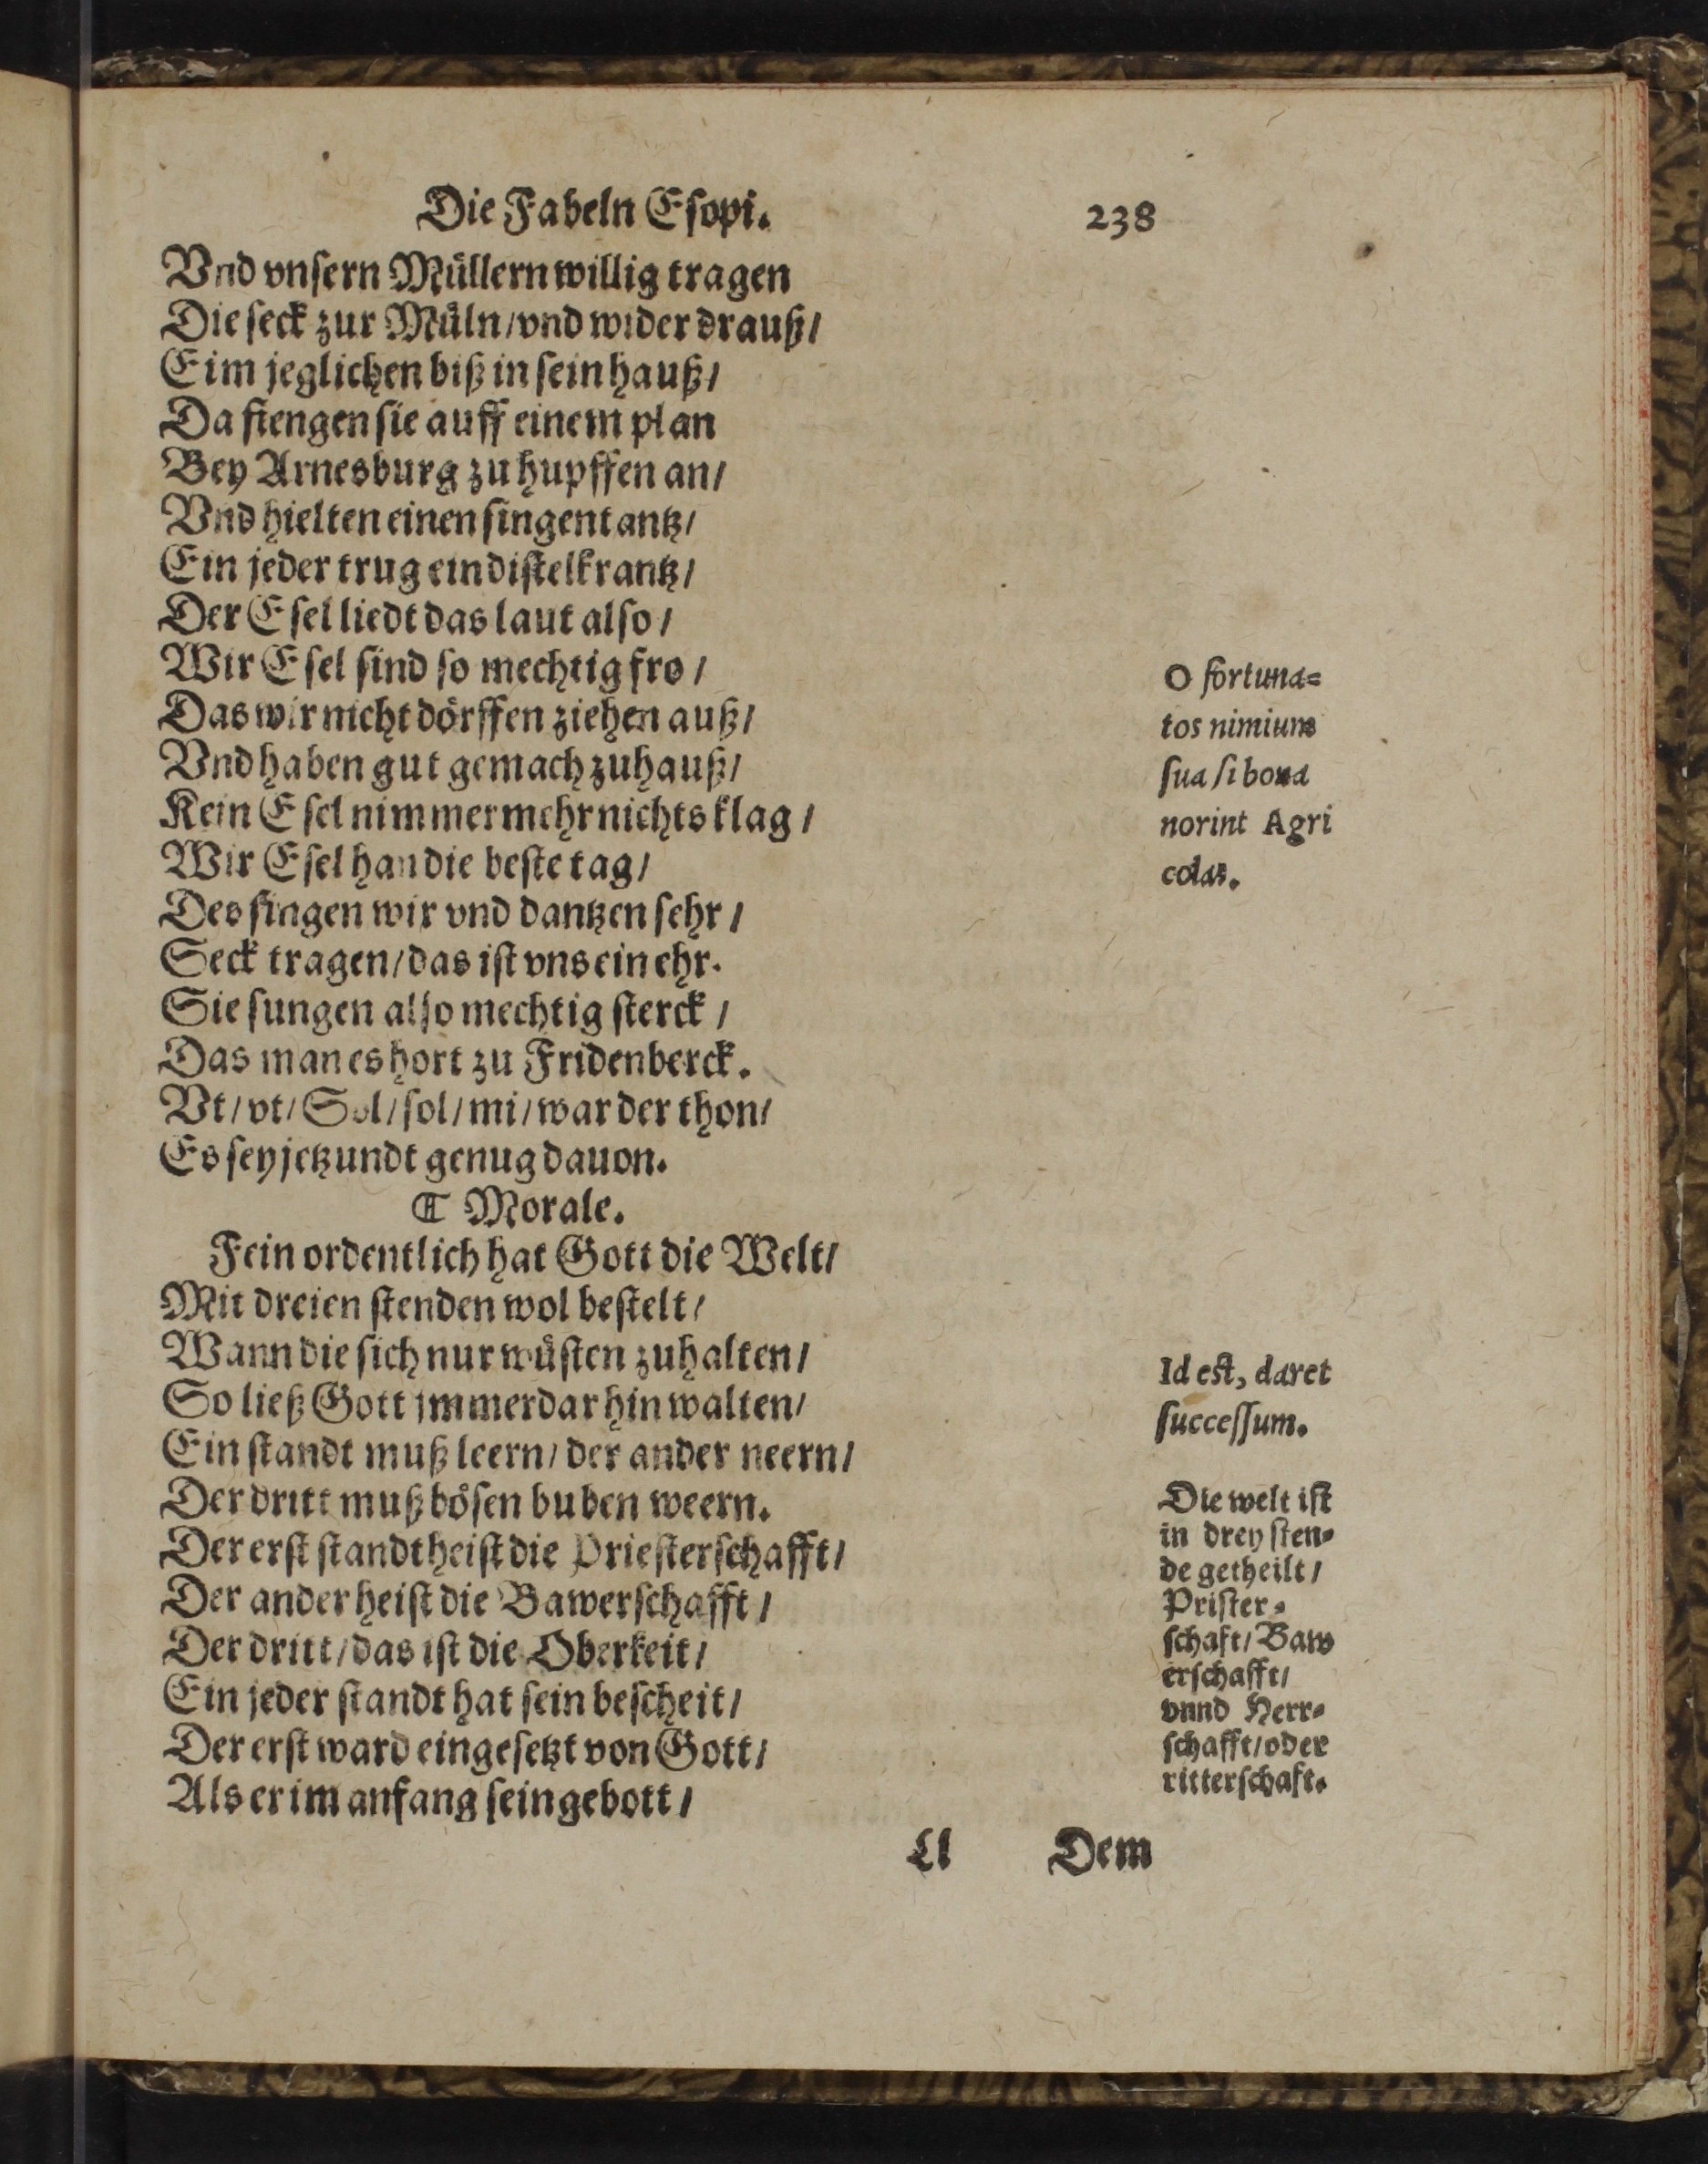 Die Fabeln Eſopi.
238
Vnd vnſern Muͤllern willig tragen
Die ſeck zur Muͤln/vnd wider drauß/
Eim jeglichen biß in ſein hauß/
Da fiengen ſie auff einem plan
Bey Arnesburg zu hupffen an/
Vnd hielten einen ſingentantz/
Ein jeder trug ein diſtelkrantz/
Der Eſel liedt das laut alſo/
Wir Eſel ſind ſo mechtig fro/
Das wir nicht doͤrffen ziehen auß/
Vnd haben gut gemach zuhauß/
Kein Eſel nimmermehr nichts klag/
Wir Eſel han die beſte tag/
Des ſingen wir vnd dantzen ſehr/
Seck tragen/das iſt vns ein ehr.
Sie ſungen alſo mechtig ſterck/
Das man es hort zu Fridenberck.
Vt/vt/Sol/ſol/mi/war der thon/
Es ſey jetzundt genug dauon.
O fortuna=
tos nimium
ſua ſi bona
norint Agri
colas.
❡ Morale.
Fein ordentlich hat Gott die Welt/
Mit dreien ſtenden wol beſtelt/
Wann die ſich nur wuͤſten zuhalten/
So ließ Gott jmmerdar hin walten/
Ein ſtandt muß leern/der ander neern/
Der dritt muß boͤſen buben weern.
Der erſt ſtandt heiſt die Prieſterſchafft/
Der ander heiſt die Bawerſchafft/
Der dritt/das iſt die Oberkeit/
Ein jeder ſtandt hat ſein beſcheit/
Der erſt ward eingeſetzt von Gott/
Als er im anfang ſein gebott/
Id eſt, daret
ſucceſſum.
Die welt iſt
in drey ſten⸗
de getheilt/
Priſter⸗
ſchaft/Baw
erſchafft/
vnnd Herr⸗
ſchafft/oder
ritterſchaft.
Ll
Dem